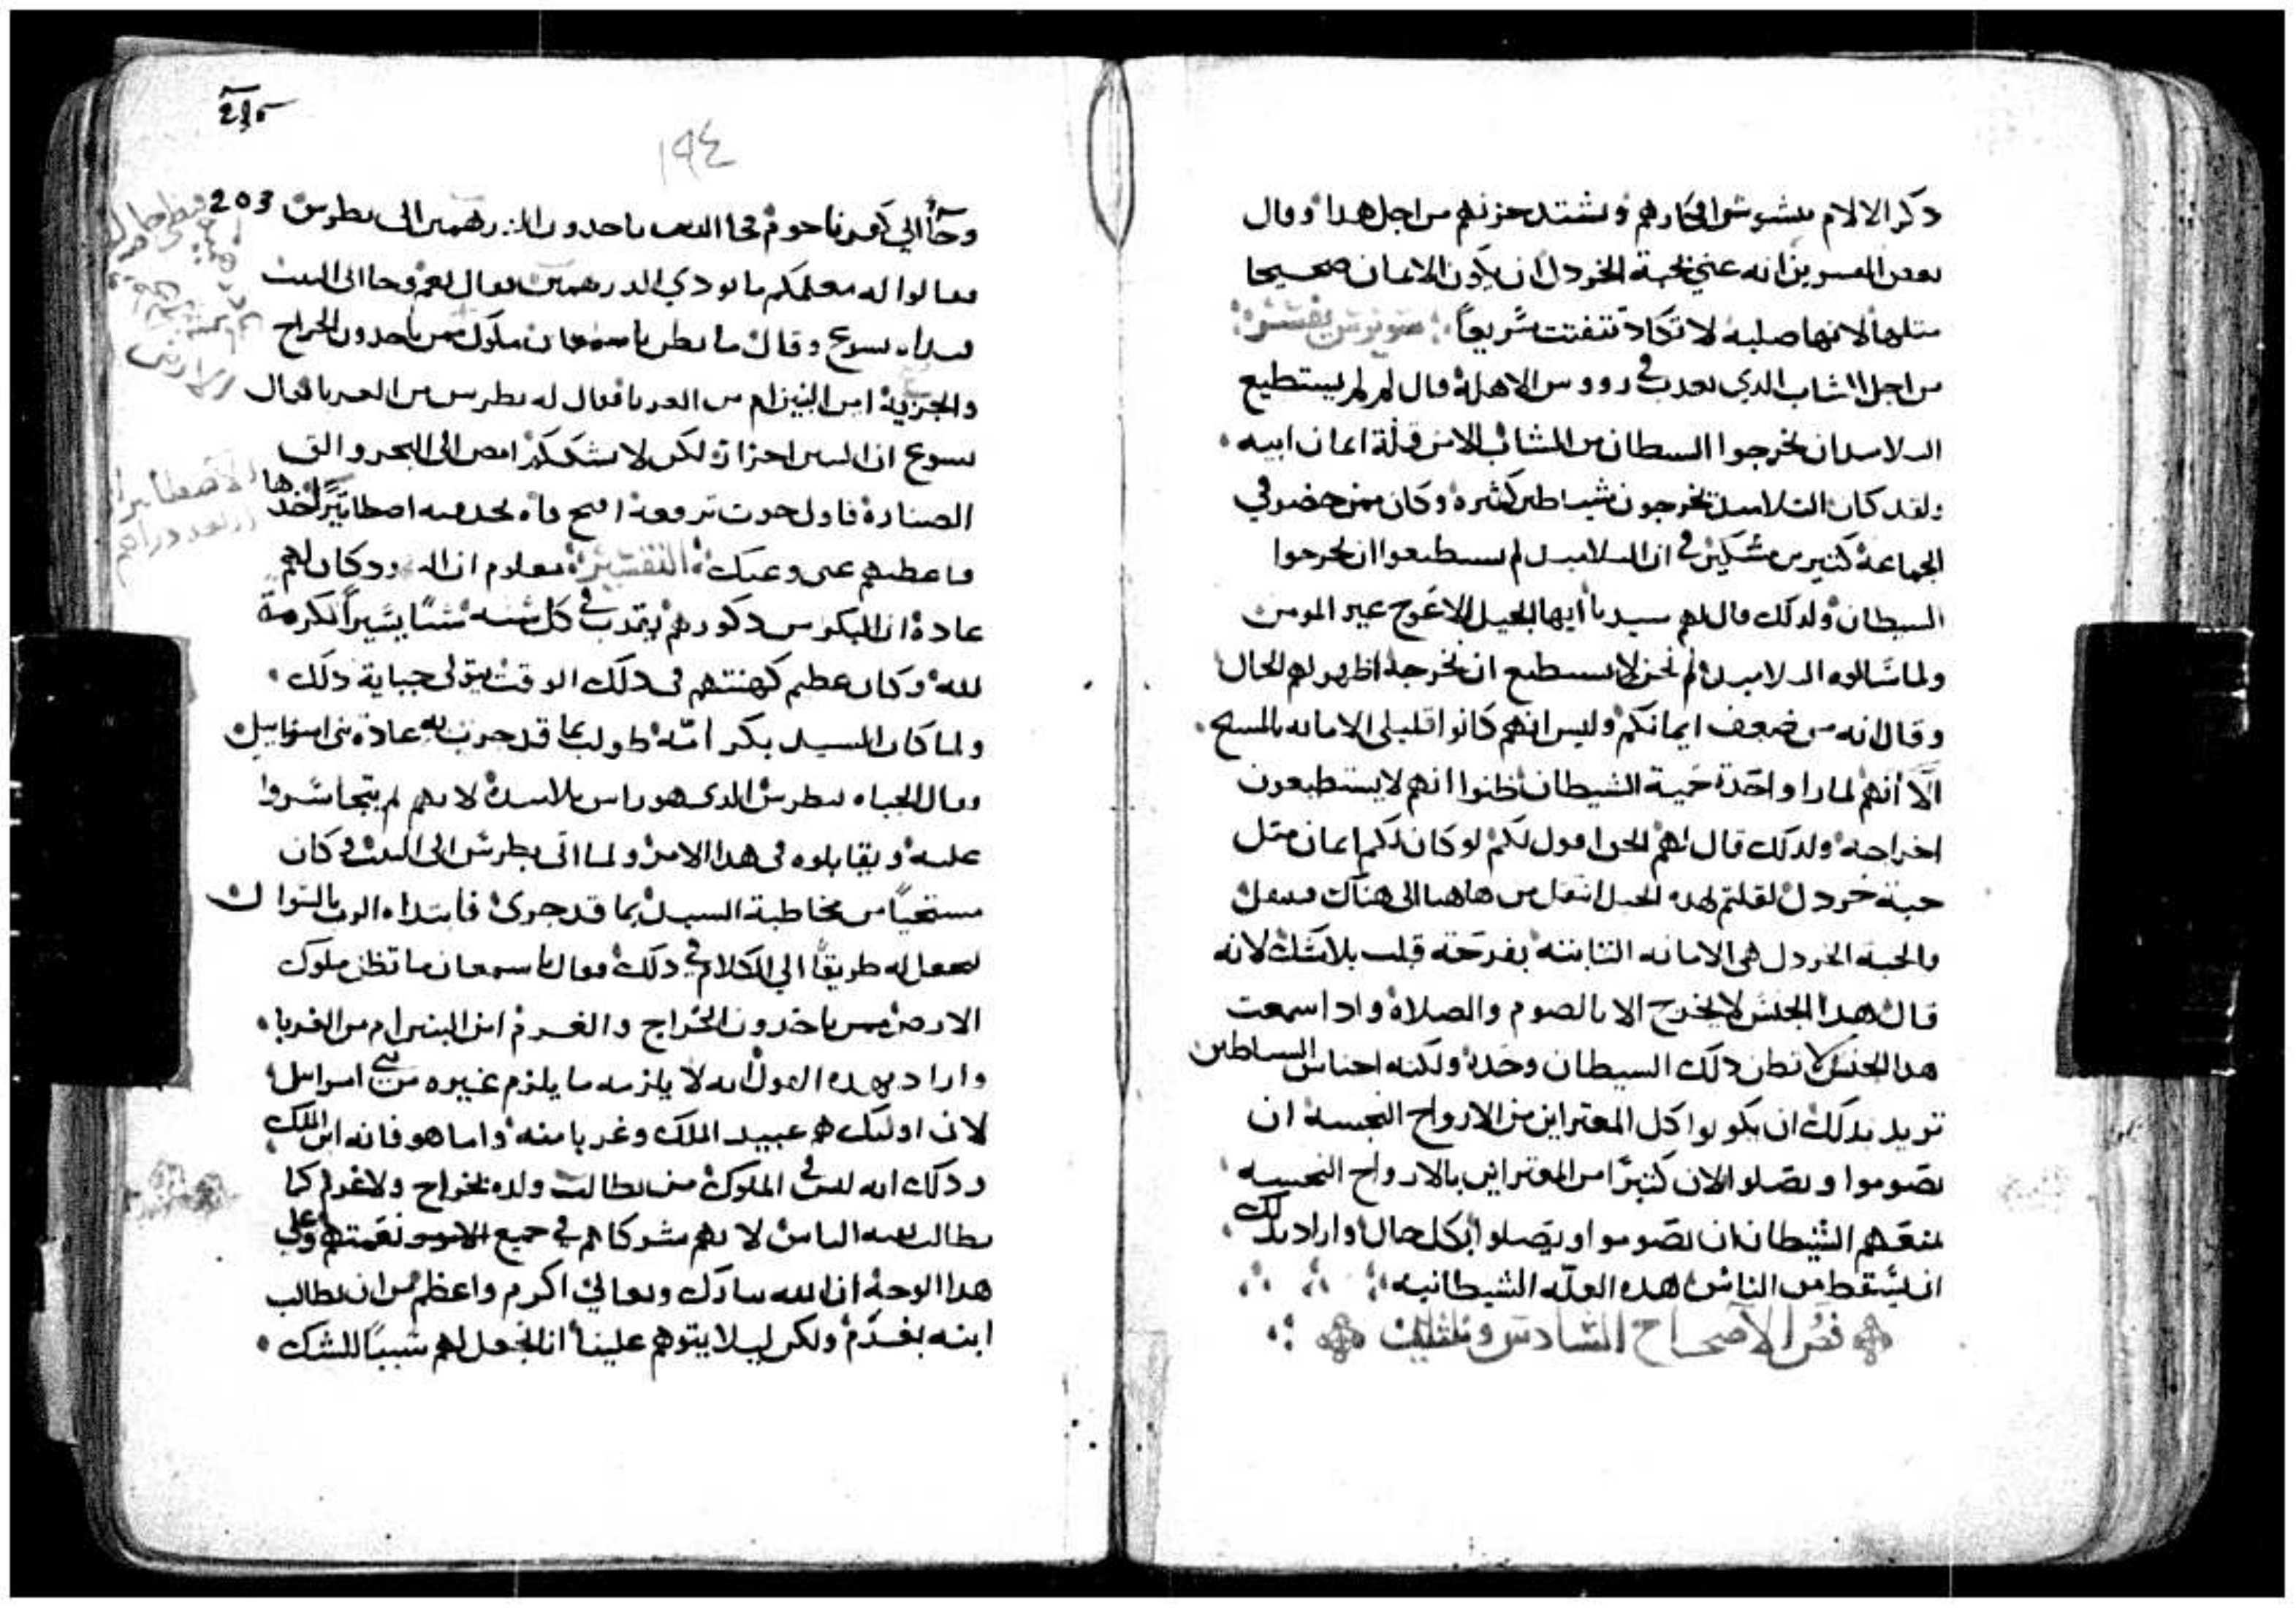 ذكر الالام يتشوشوا افكارهم وتشتد حزنهم من اجل هدا وقال
بعض المفسرين انه عني بحبة الخردل ان يكون الايمان صحيحا
مثلها لانها صلبه لا تكاد تتفتت سريعاً
من اجل الشاب الدي يعدب في رووس الاهلة قال لم لم يستطيع
التلاميد ان يخرجوا الشيطان من الشاب الا من قلة ايمان ابيه
ولقد كان التلاميد يخرجون شياطين كثيره وكان ممن حضر في
الجماعة كثير من متشككين في ان التلاميد لم يستطيعوا ان يخرجوا
الشيطان ولدلك قال لهم سيدنا ايها الجيل الاعوج غير المومن
ولما سالوه التلاميد لم نحن لا نستطيع ان نخرجه اظهر لهم الحال
وقال انه من ضعف ايمانكم وليس انهم كانوا قليلي الامانه بالمسيح
الا انهم لما راوا حدة حمية الشيطان ظنوا انهم لا يستطيعون
اخراجه ولدلك قال لهم الحق اقول لكم لو كان لكم ايمان متل
حبة خردل لقلتم لهدا الجبل انتقل من هاهنا الى هناك فينتقل
والحبة الخردل هي الامانه التابته بفرحة قلب بلا شك لانه
قال هدا الجنس لا يخرج الا بالصوم والصلاة وادا سمعت
هدا الجنس لا تظن دلك الشيطان وحده ولكنه اجناس الشياطين
تريد بدلك ان يكونوا كل المعترين من الارواح النجسه ان
يصوموا ويصلوا لان كثيرًا من المعترين بالارواح النجسه
يمنعهم الشيطان ان يصوموا او يصلوا بكل حال واراد بدلك
ان يسقط من الناس هده العله الشيطانيه
فص الاصحاح السادس وتلتين
٢١٥
١٩٤
203
وجآ الي كفرناحوم فجا الدين ياخدون الدرهمين الى بطرس
فقالوا له معلمكم ما يودي الدرهمين فقال نعم وجا الى البيت
فبداه يسوع وقال ما تظن يا سمعان ملوك ممن ياخدون الخراج
والجزية امن البنين ام من الغربا فقال له بطرس من الغربا فقال
يسوع ان البنين احرارة لكن لا نشككهم امض الى البحر والق
الصنارة فاول حوت ترفعه افتح فاه تجد فيه اصطاتيرًا خدها
فاعطيهم عني وعنك التفسير معلوم ان اليهود كان لهم
عادة ان البكر من دكورهم يقرب في كل سنه شيًا يسيراً لكرمة
لله وكان عظيم كهنتهم في دلك الوقت يتولى جباية دلك
ولما كان السيد بكر امه طولب بما قد جرت به عادة بني اسراييل
وقال الجباه لبطرس الدي هو راس تلاميده لانهم لم يتجاسروا
عليه ويقابلوه في هدا الامر ولما اتى بطرس الى البيت كان
مستحيًا من مخاطبة السيد بما قد جرى فابتداه الرب بالسوال
ليجعل له طريقًا الي الكلام في دلك فقال يا سمعان ما تظن ملوك
الارض ممن ياخدون الخراج والغرم امن البنين ام من الغربا
واراد بهده القول انه لا يلزمه ما يلزم غيره من بني اسراييل
لان اوليك هم عبيد الملك وغربا منه واما هو فانه ابن الملك
ودلك انه ليس في الملوك من يطالب ولده بخراج ولا غرم كما
يطالب بقية الناس لانهم شركاهم في جميع نعمتهم وعلى
هدا الوجه ان الله تبارك وتعالي اكرم واعظم من ان يطالب
ابنه بغرم ولكن ليلا يتوهم علينا اننا نجعل لهم سببًا للشك